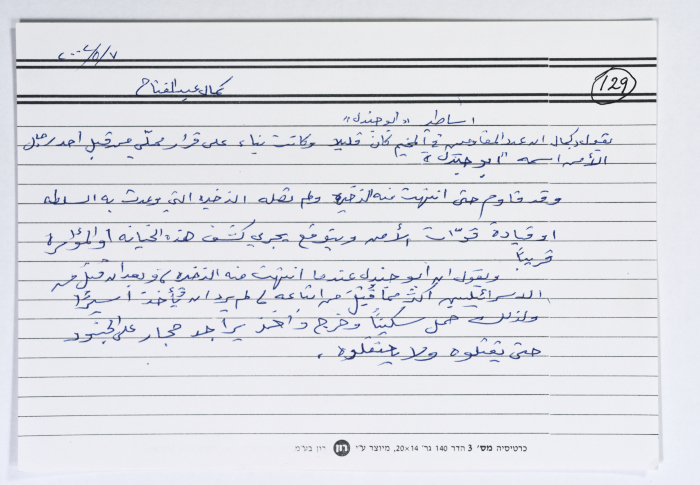 ٢٠٠٤/٥/٧
129
كمال عبد الفتاح
اساطير "ابو جندل"
يقول كمال ان عدد المقاومين في المخيم كان قليلا وكانت بناء على قرار محلّي من قبل احد رجال
الأمن اسمه "ابو جندل"
وقد قاوم حتى انتهت منه الذخيرة ولم تصله الذخيرة التي وعدت به السلطه
او قيادة قوّات الأمن ويتوقع يجري كشف هذه الخيانه او المؤامرة
قريباً
ويقول ان ابو جندل عندما انتهت منه الذخيره، وبعد ان قتل من
الاسرائيليين أكثر مما قُتل من اتباعه، لم يرد ان يُأخذ أسيرًا
ولذلك حمل سكينًا وخرج وأخذ يراجد حجار على الجنود
حتى يقتلوه ولا يعتقلوه.
כרטיסיה מס' 3 הדר 140 גר' 20×14, מיוצר ע"י רון רון בע"מ